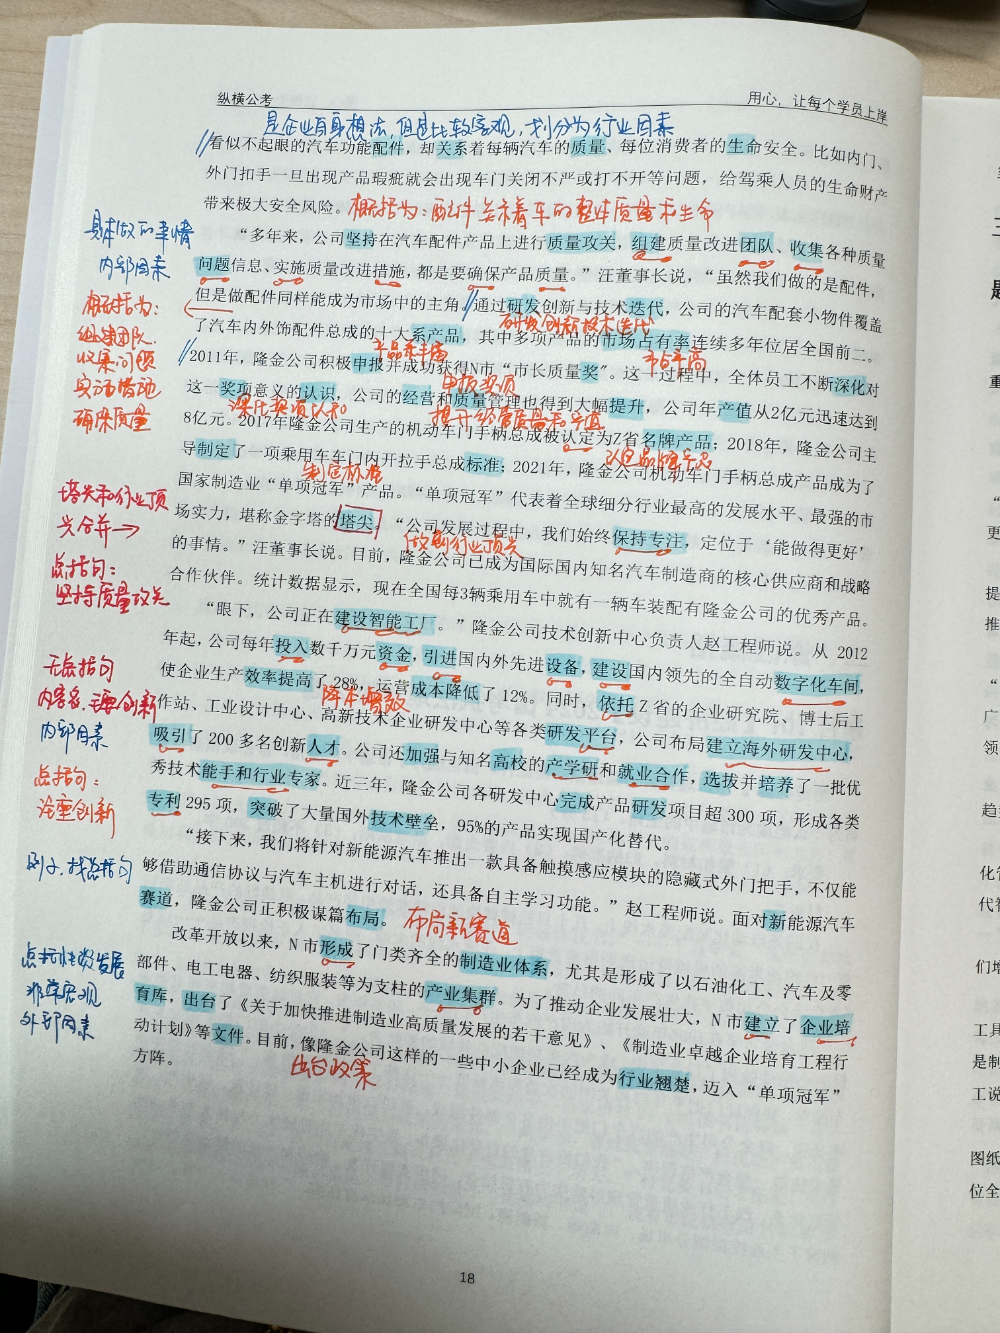 纵横公考
用心，让每个学员上岸
是企业自身想法，但是比较客观，划分为行业因素
看似不起眼的汽车功能配件，却关系着每辆汽车的质量、每位消费者的生命安全。比如内门、
外门扣手一旦出现产品瑕疵就会出现车门关闭不严或打不开等问题，给驾乘人员的生命财产
带来极大安全风险。
概括为：配件关系着车的整体质量和生命
“多年来，公司坚持在汽车配件产品上进行质量攻关，组建质量改进团队、收集各种质量
问题信息、实施质量改进措施，都是要确保产品质量。”汪董事长说，“虽然我们做的是配件，
但是做配件同样能成为市场中的主角。”通过研发创新与技术迭代，公司的汽车配套小物件覆盖
研发创新技术迭代
了汽车内外饰配件总成的十大系产品，其中多项产品的市场占有率连续多年位居全国前二。
产品系丰富
市占率高
2011年，隆金公司积极申报并成功获得N市“市长质量奖”。这一过程中，全体员工不断深化对
申报奖项
这一奖项意义的认识，公司的经营和质量管理也得到大幅提升，公司年产值从2亿元迅速达到
深化奖项认知
提升经营质量和产值
8亿元。2017年隆金公司生产的机动车门手柄总成被认定为Z省名牌产品；2018年，隆金公司主
认定品牌产品
导制定了一项乘用车车门内开拉手总成标准；2021年，隆金公司机动车门手柄总成产品成为了
制定标准
国家制造业“单项冠军”产品。“单项冠军”代表着全球细分行业最高的发展水平、最强的市
场实力，堪称金字塔的塔尖。“公司发展过程中，我们始终保持专注，定位于‘能做得更好’
做到行业顶尖
的事情。”汪董事长说。目前，隆金公司已成为国际国内知名汽车制造商的核心供应商和战略
合作伙伴。统计数据显示，现在全国每3辆乘用车中就有一辆车装配有隆金公司的优秀产品。
“眼下，公司正在建设智能工厂。”隆金公司技术创新中心负责人赵工程师说。从 2012
年起，公司每年投入数千万元资金，引进国内外先进设备，建设国内领先的全自动数字化车间，
使企业生产效率提高了 28%，运营成本降低了 12%。同时，依托 Z 省的企业研究院、博士后工
降本增效
作站、工业设计中心、高新技术企业研发中心等各类研发平台，公司布局建立海外研发中心，
吸引了 200 多名创新人才。公司还加强与知名高校的产学研和就业合作，选拔并培养了一批优
秀技术能手和行业专家。近三年，隆金公司各研发中心完成产品研发项目超 300 项，形成各类
专利 295 项，突破了大量国外技术壁垒，95%的产品实现国产化替代。
“接下来，我们将针对新能源汽车推出一款具备触摸感应模块的隐藏式外门把手，不仅能
够借助通信协议与汽车主机进行对话，还具备自主学习功能。”赵工程师说。面对新能源汽车
赛道，隆金公司正积极谋篇布局。
布局新赛道
改革开放以来，N 市形成了门类齐全的制造业体系，尤其是形成了以石油化工、汽车及零
部件、电工电器、纺织服装等为支柱的产业集群。为了推动企业发展壮大，N 市建立了企业培
育库，出台了《关于加快推进制造业高质量发展的若干意见》、《制造业卓越企业培育工程行
动计划》等文件。目前，像隆金公司这样的一些中小企业已经成为行业翘楚，迈入“单项冠军”
出台政策
方阵。
具体做的事情
内部因素
概括为：
组建团队.
收集问题
实施措施
确保质量
塔尖和行业顶
尖合并→
总括句：
坚持质量攻关
无总括句
内容多,主要创新
内部因素
总括句：
注重创新
例子，找总括句
非常宏观
外部因素
18